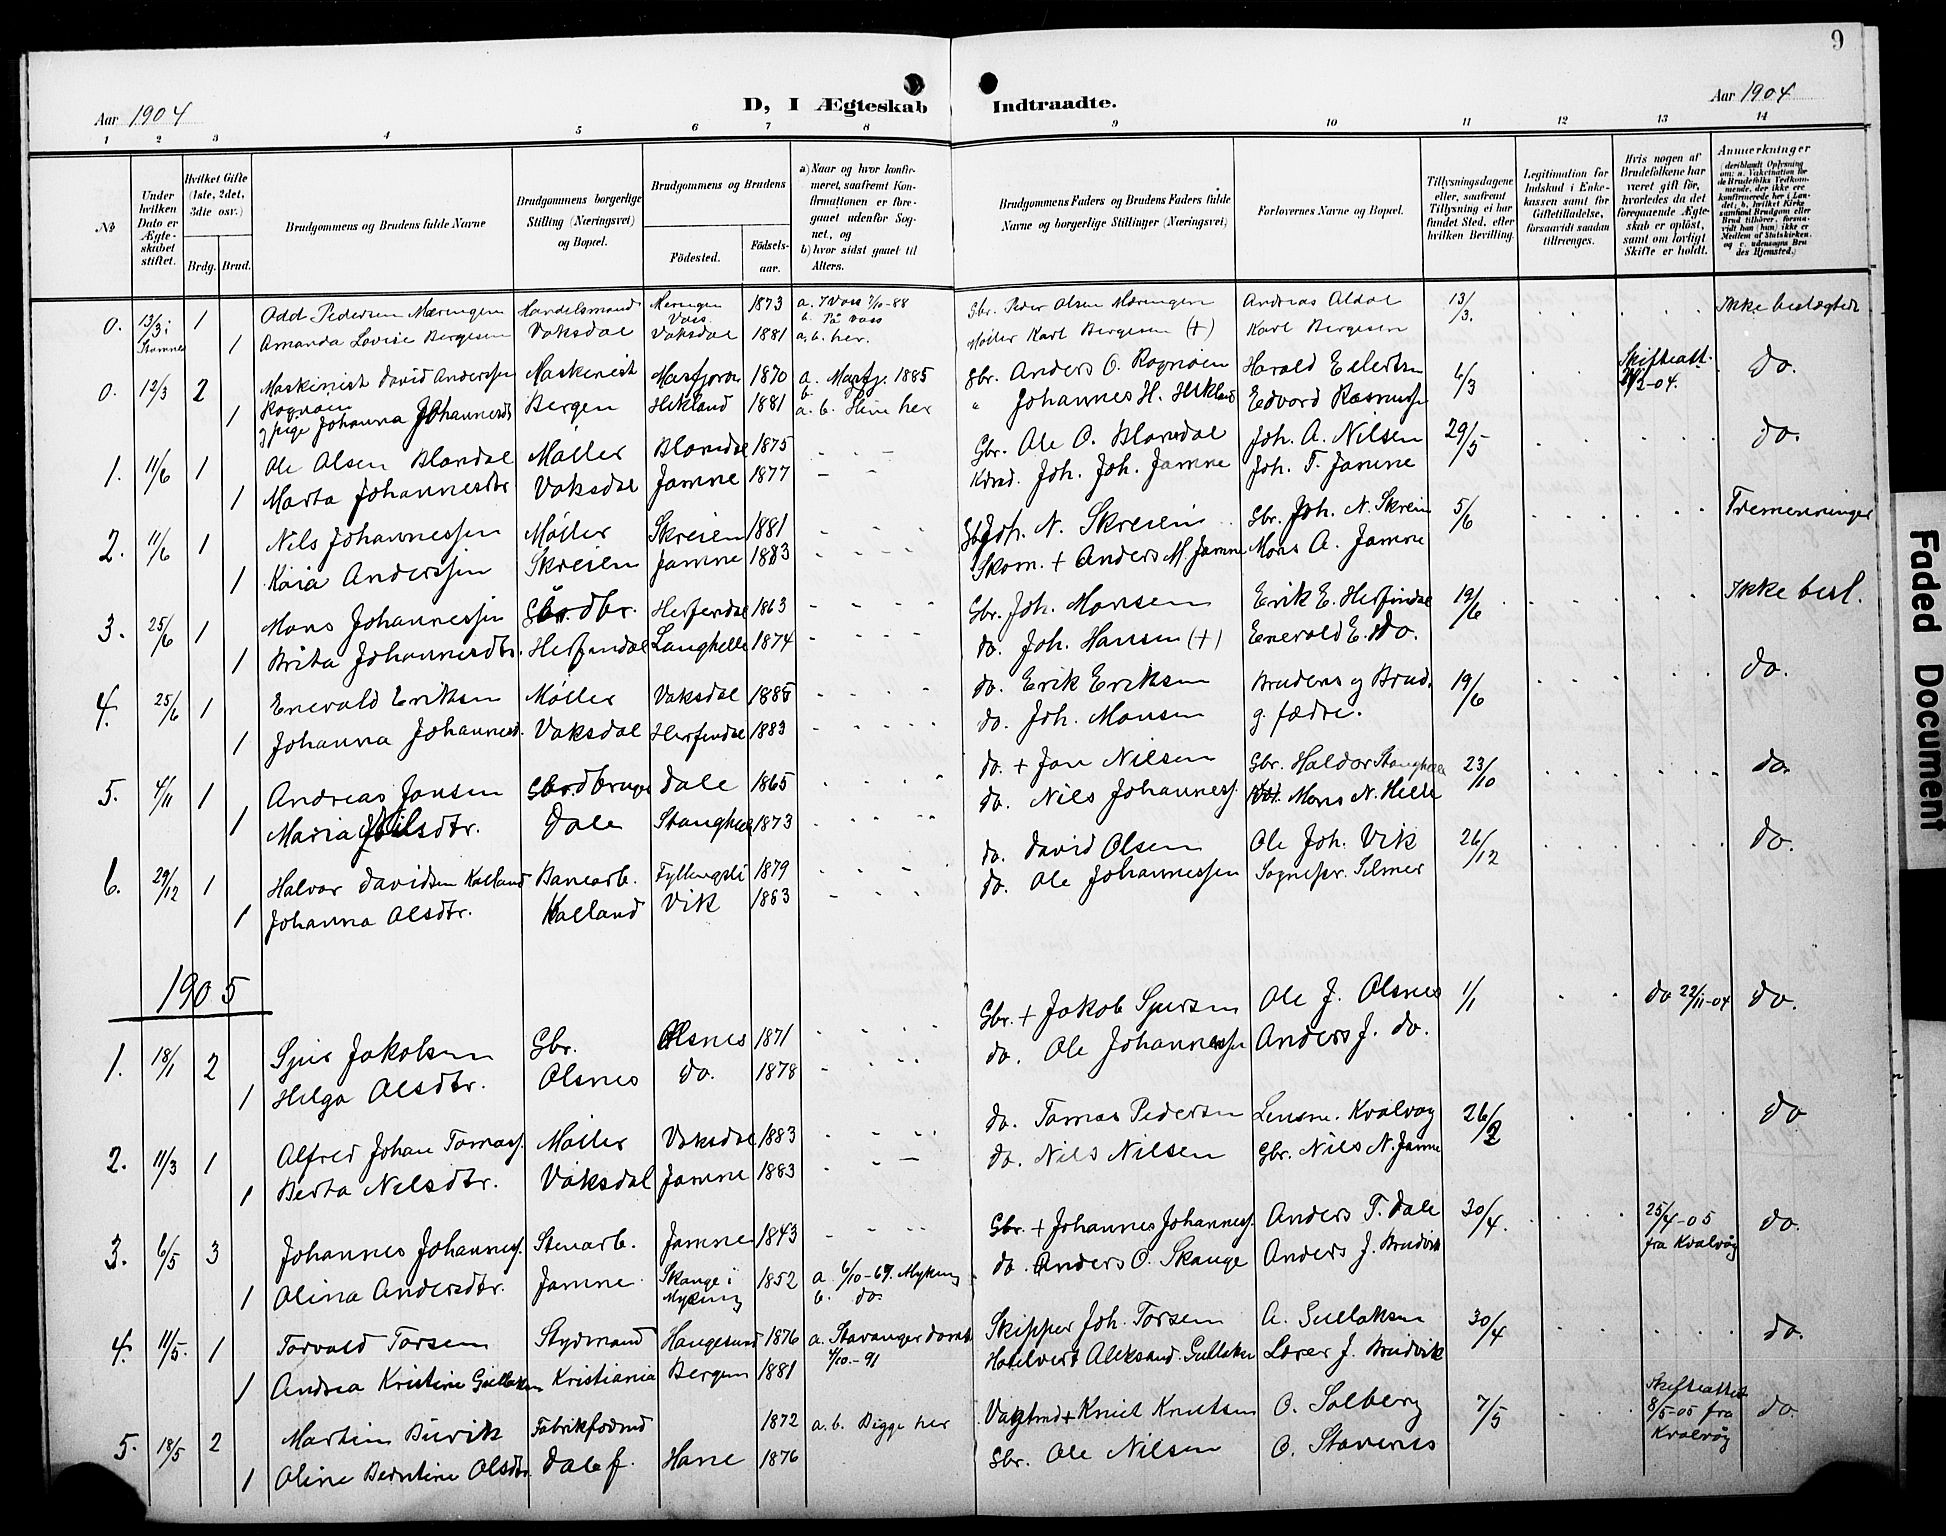 9
Aar 1904
D, I Ægteskab Indtraadte.
Aar 1904
1 2 3 4 5 6 7 8 9 10 11 12 13 14
№
Under hvilken Dato er Ægteskabet stiftet.
Hvilket Gifte (1ste, 2det, 3die osv.)
Brdg. Brud.
Brudgommens og Brudens fulde Navne
Brudgommens borgerlige Stilling (Næringsvei) og Bopæl.
Brudgommens og Brudens
Födested. Födsels-aar.
a) Naar og hvor konfirmeret, saafremt Konfirmationen er foregaaet udenför Sognet, og
b) hvor sidst gaaet til Alters.
Brudgommens Faders og Brudens Faders fulde Navne og borgerlige Stillinger (Næringsvei)
Forlovernes Navne og Bopæl.
Tillysningsdagene eller, saafremt Tillysning ei har fundet Sted, efter hvilken Bevilling.
Legitimation for Indskud i Enkekassen samt for Giftetilladelse, forsaavidt saadan tiltrænges.
Hvis nogen af Brudefolkene har været gift för, hvorledes da det foregaaende Ægteskab er oplöst, samt om lovligt Skifte er holdt.
Anmærkninger
0. 13/3 i Stamnes 1 Odd Pedersen Mæringen Handelsmand Meringen Voss 1873 a. i Voss 2/10-88 b. På Voss Gbr. Peder Olsen Mæringen Andreas Aldal 13/3. Ikke beslægtede
1 Amanda Lovise Bergesen Vaksdal Vaksdal 1881 a. b. her. Møller Karl Bergesen (+) Karl Bergesen
0. 12/3 2 Maskinist David Anderssen Rognøen Maskinist Masfjorden 1870 a. Masfj. 1885 Gbr. Anders O. Rognøen Harald Eilertsen 6/3 Skifteatt. 2-04. do.
1 g pige Johanna Johannesdtr Bergen Hekland 1881 a. b. her " Johannes H. Hekland Edvard Rasmussen
1. 11/6 1 Ole Olsen Blomdal Møller Blomdal 1875 Gbr. Ole O. Blomdal Joh. A. Nilsen 29/5 do.
1 Marta Johannesdtr Vaksdal Jamne 1877 Joh. Joh. Jamne Joh. T. Jamne
2. 11/6 1 Nils Johannessen Møller Skreien 1881 Gbr Joh. N. Skreien Gbr. Joh. N. Skrein 5/6 Tremenninger
1 Kaia Anderssen Skreien Jamne 1883 Skom. + Anders M. Jamne Mons A. Jamne
3. 25/6 1 Mons Johannessen Gbr. Herfindal 1863 Gbr. Joh. Monsen Erik E. Herfindal 19/6 Ikke besl.
1 Brita Johannesdtr. Herfindal Langhelle 1874 do. Joh. Hansen (+) Enevald E. do.
4. 25/6 1 Enevald Eriksen Møller Vaksdal do. Erik Eriksen Brudens og Brudg. fædre. 19/6 do.
1 Johanna Johannesd. Vaksdal Herfindal 1883 do. Joh. Monsen
5. 4/11 1 Andreas Jonsen Gbr. Dale 1865 do. + Jon Nilsen Gbr. Haldor Stanghelle 23/10 do.
1 Maria Nilsdtr. Dale Stanghelle 1873 do. Nils Johanness. Mons N. Helle
6. 29/12 1 Halvor Davidsen Kalland Banearb. Fyllingsli 1879 do. David Olsen Ole Joh. Vik 26/12 do.
1 Johanna Olsdtr. Kalland Vik 1883 do. Ole Johannessen Sognepr. Selmer
1905
1. 18/1 2 Sjur Jakobsen Gbr. Olsnes 1871 Gbr. + Jakob Sjursen Ole J. Olsnes 1/1 do 22/11-04 do.
1 Helga Olsdtr. Olsnes do. 1878 do. Ole Johannessen Anders J. do.
2. 11/3 1 Alfred Johan Tomass. Møller Vaksdal 1883 do. Tomas Pedersen Lensm. Kvalvåg 26/2 do
1 Berta Nilsdtr. Vaksdal Jamne 1883 do. Nils Nilsen Gbr. Nils N. Jamne
3. 6/5 3 Johannes Johanness. Stenarb. Jamne 1843 Gbr. + Johannes Johanness. Anders T. Dale 30/4. 25/4-05 fra Kvalvåg do.
1 Olina Andersdtr. Jamne Skauge i Myking 1852 a. 6/10-67. Myking b. do. do. Anders O. Skauge Anders J. Brudvik
4. 11/5. 1 Torvald Torsen Styrmand Haugesund 1876 a. Stavanger domk. 4/10-91 Skipper Joh. Torsen A. Gullaksen 30/4 do.
1 Andrea Kristine Gullaksen Kristiania Bergen 1881 Hotelvert Aleksand. Gullaksen Lærer J. Brudvik
5. 18/5 2 Martin Buvik Fabrikformd 1872 a. b. Begge her + Knut Knutsen O. Solberg 7/5 Skifteattest 8/5-05 fra Kvalvåg do.
1 Oline Berntine Olsdtr Dale f. Hane 1876 Gbr. Ole Nilsen O. Stavenes
Faded Document